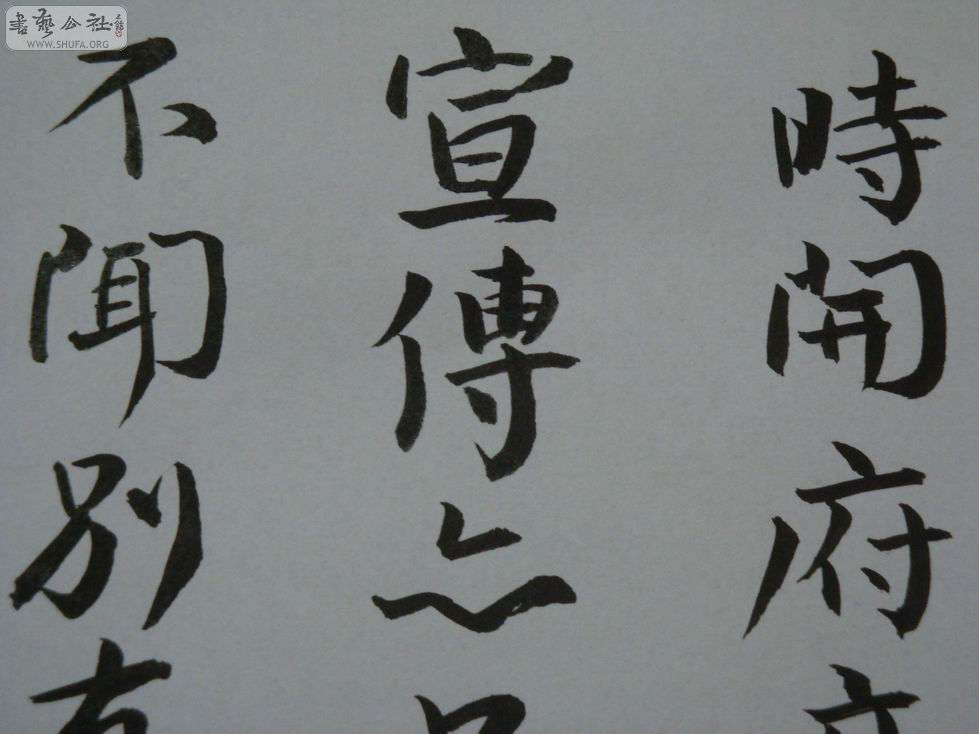 書藝公社
WWW.SHUFA.ORG
時開府
宣傳亦
不聞別有